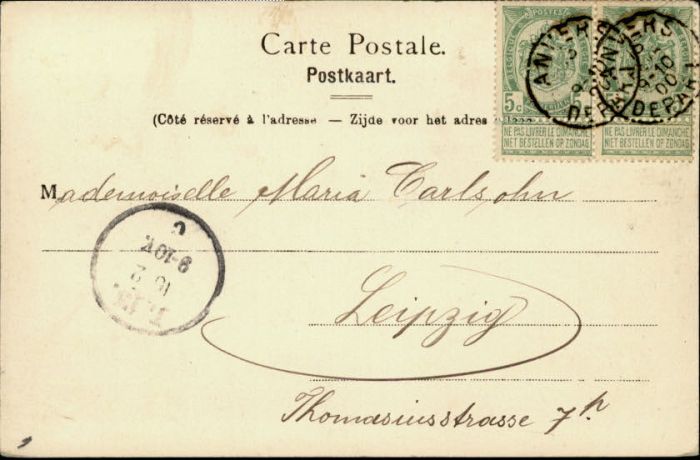 Carte Postale.
Postkaart.
(Côté réservé à l'adresse — Zijde voor het adres
5c 5
NE PAS LIVRER LE DIMANCHE NE PAS LIVRER LE DIMANCHE
NIET BESTELLEN OP ZONDAG NIET BESTELLEN OP ZONDAG
ANVERS
DEPART
ANVERS
DEPART
Mademoiselle Maria Carlsohn
9-10V.
Leipzig
Thomasiusstrasse 7h